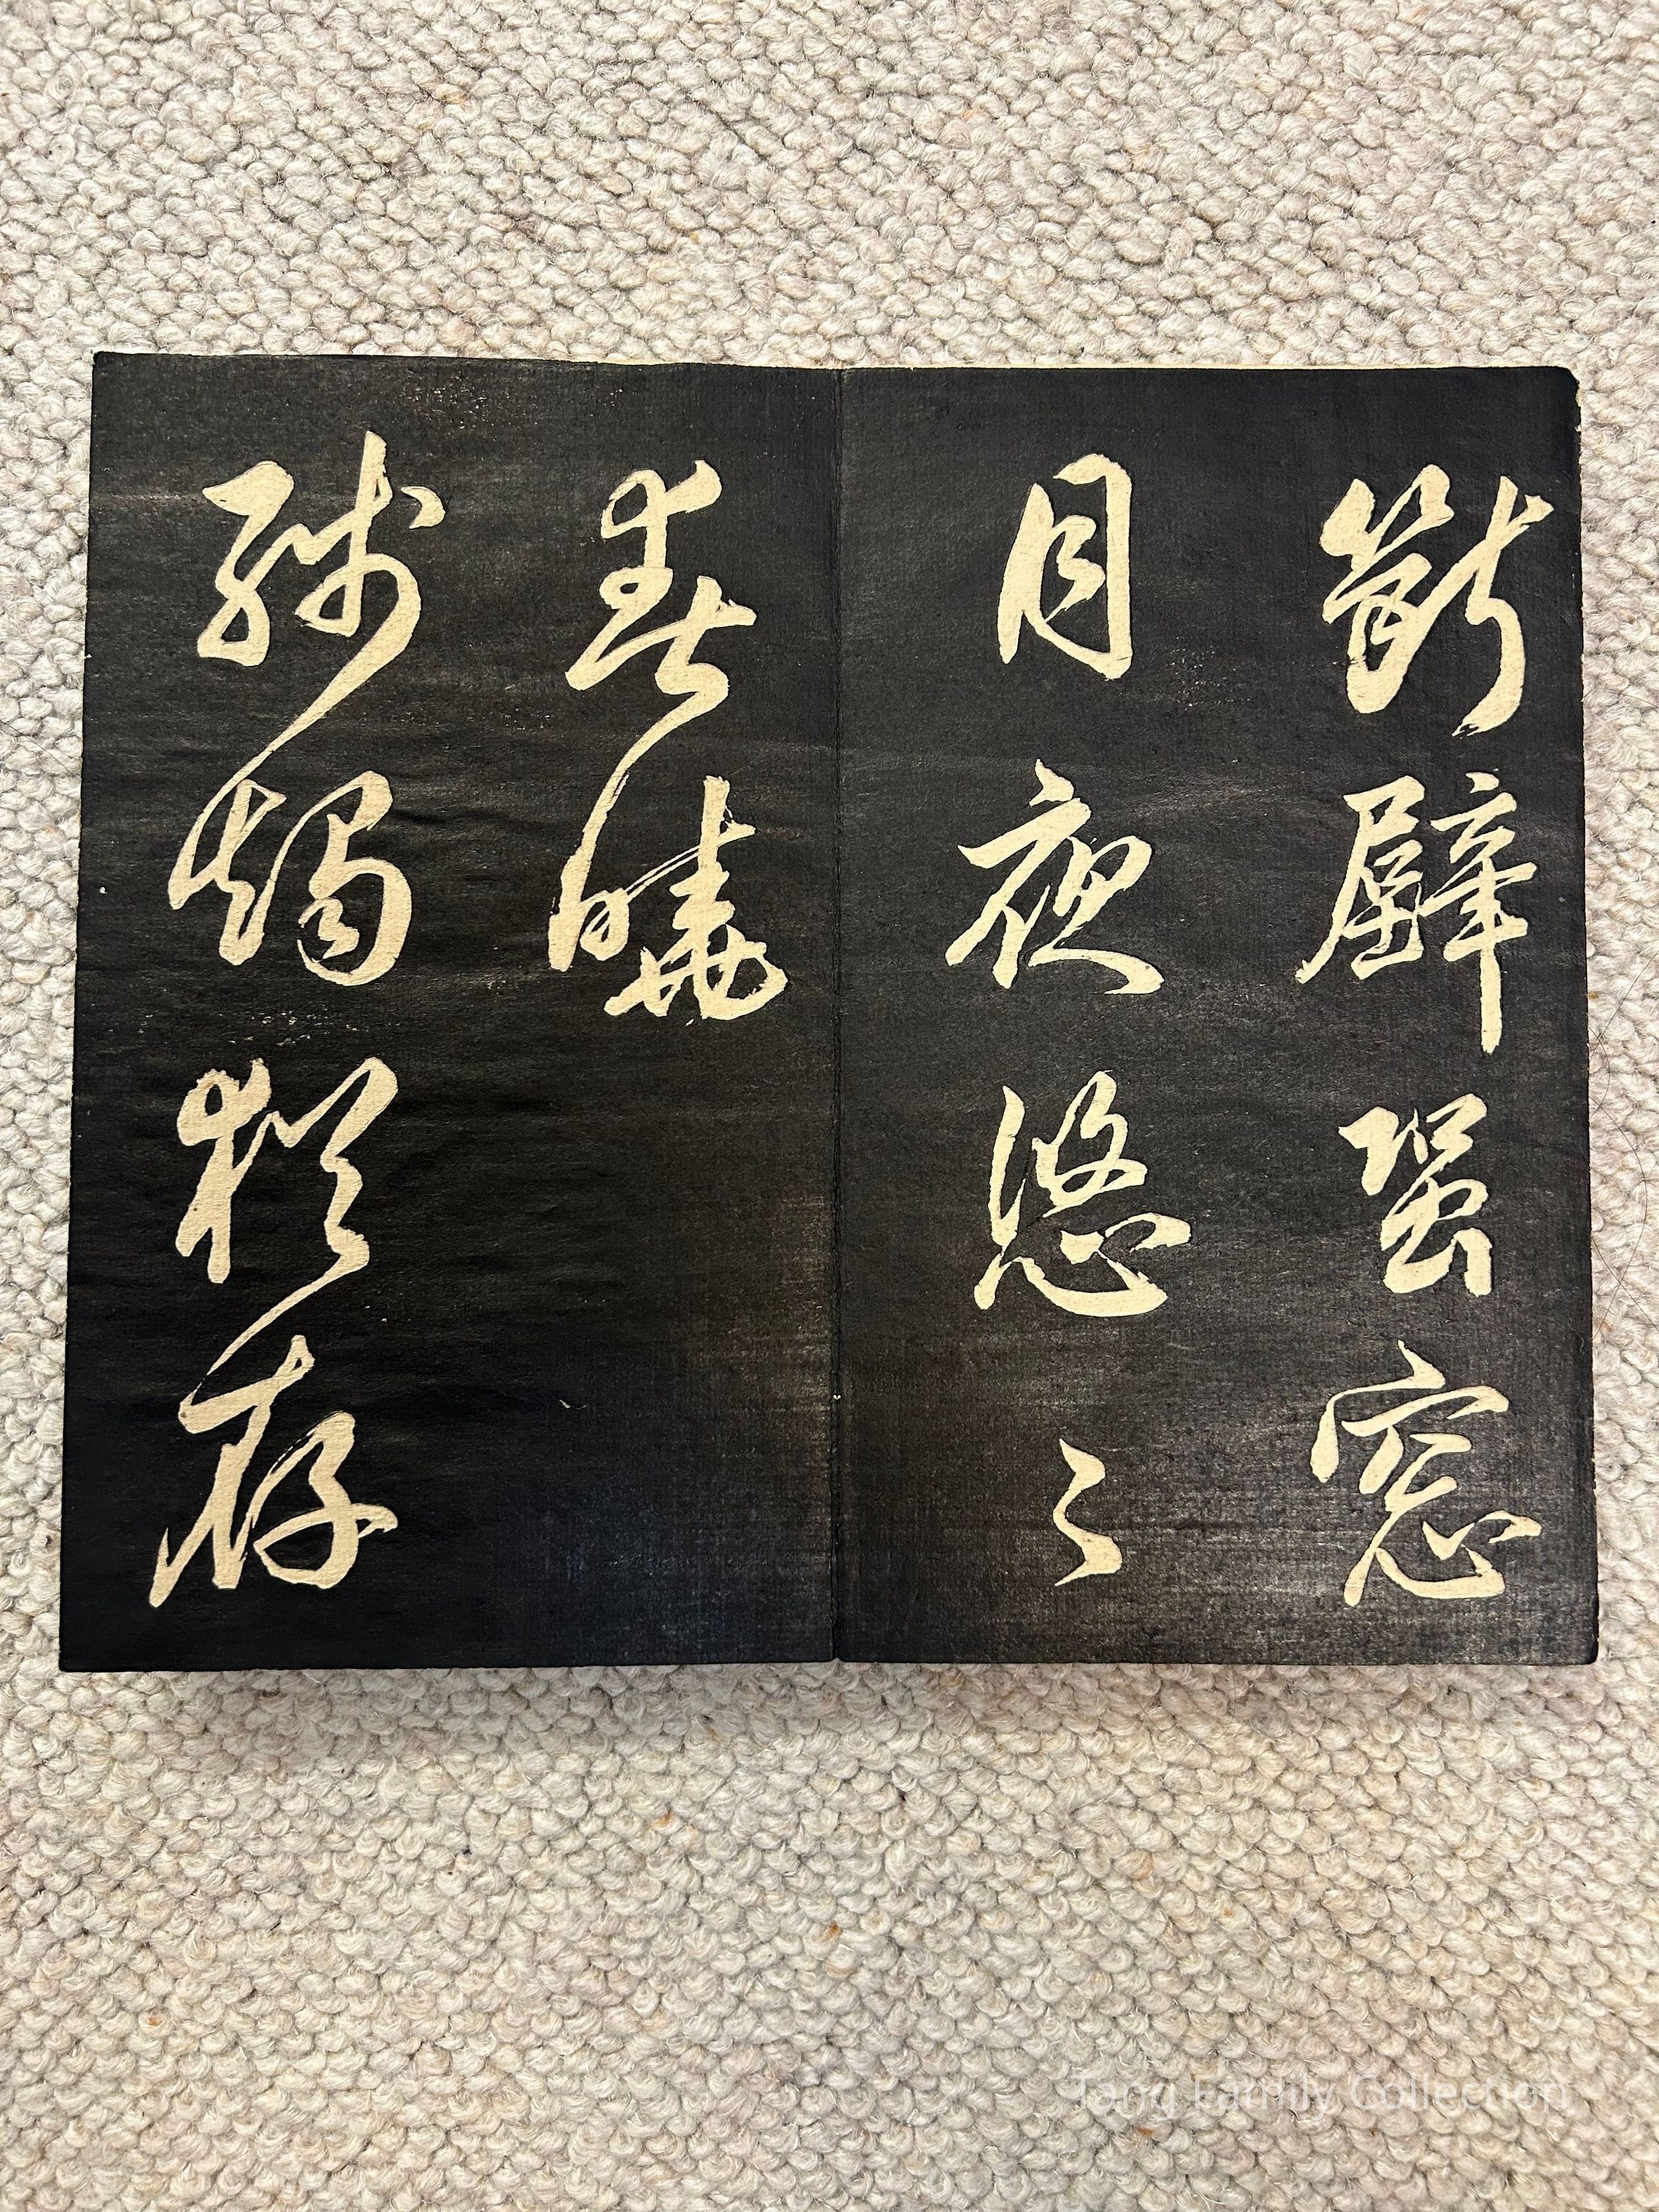 斷壁蛩窓
月夜悠々
春曉
殘燭猶存
Tang Family Collection